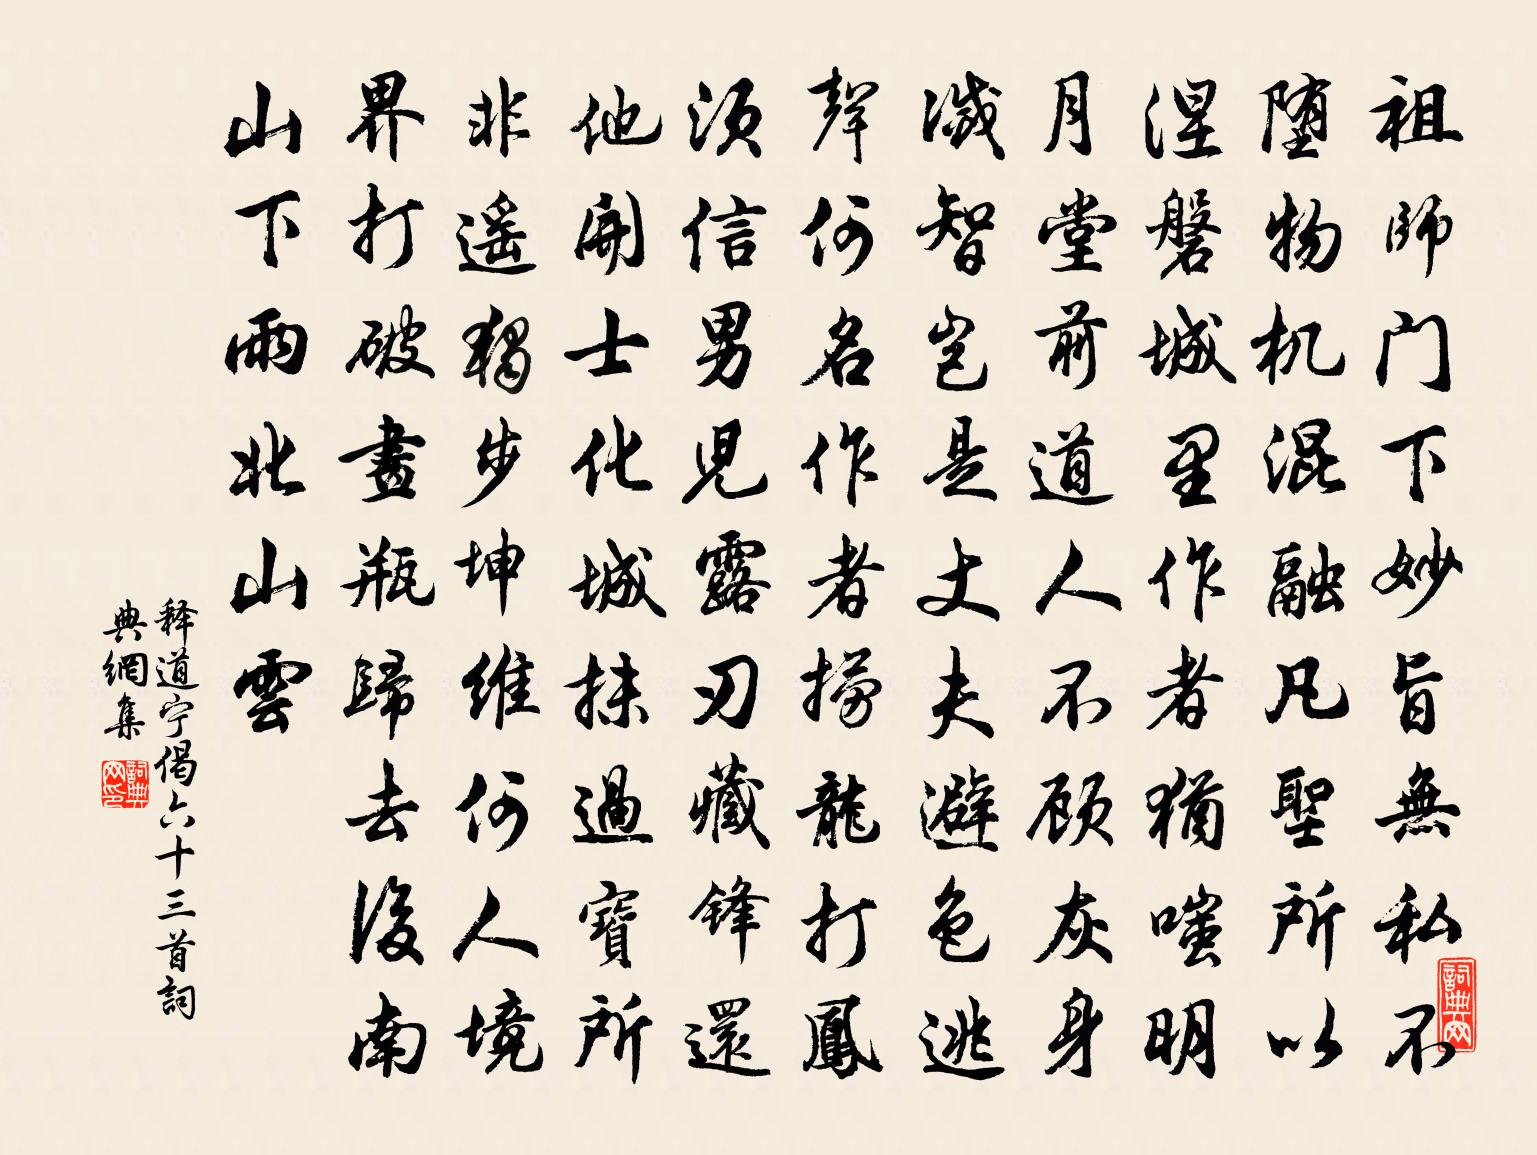 祖師门下妙旨無私不
堕物机混融凡聖所以
涅磐城里作者猶嗤明
月堂前道人不顾灰身
滅智岂是丈夫避色逃
聲何名作者撈龍打鳳
須信男児露刃藏锋還
他開士化城抹過寶所
非遥獨步坤維何人境
界打破畫瓶歸去後南
山下雨北山雲
释道宁偈六十三首詞
典網集
詞典网
詞典网印